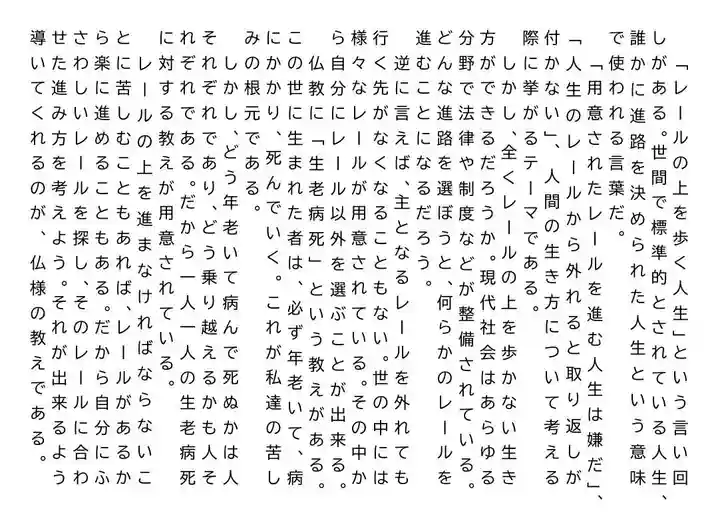 「レールの上を歩く人生」という言い回
しがある。世間で標準的とされている人生、
誰かに進路を決められた人生という意味
で使われる言葉だ。
「用意されたレールを進む人生は嫌だ」、
「人生のレールから外れると取り返しが
付かない」、人間の生き方について考える
際に挙がるテーマである。
しかし、全くレールの上を歩かない生き
方ができるだろうか。現代社会はあらゆる
分野で法律や制度などが整備されている。
どんな進路を選ぼうと、何らかのレールを
進むことになるだろう。
逆に言えば、主となるレールを外れても
行く先がなくなることもない。世の中には
様々なレールが用意されている。その中か
ら自分にレール以外を選ぶことが出来る。
仏教に「生老病死」という教えがある。
この世に生まれた者は、必ず年老いて、病
にかかり、死んでいく。これが私達の苦し
みの根元である。
しかし、どう年老いて病んで死ぬかは人
それぞれであり、どう乗り越えるかも人そ
れぞれである。だから一人一人の生老病死
に対する教えが用意されている。
レールの上を進まなければならないこ
とに苦しむこともあれば、レールがあるか
ら楽に進めることもある。だから自分にふ
さわしいレールを探し、そのレールに合わ
せた進み方を考えよう。それが出来るよう
導いてくれるのが、仏様の教えである。